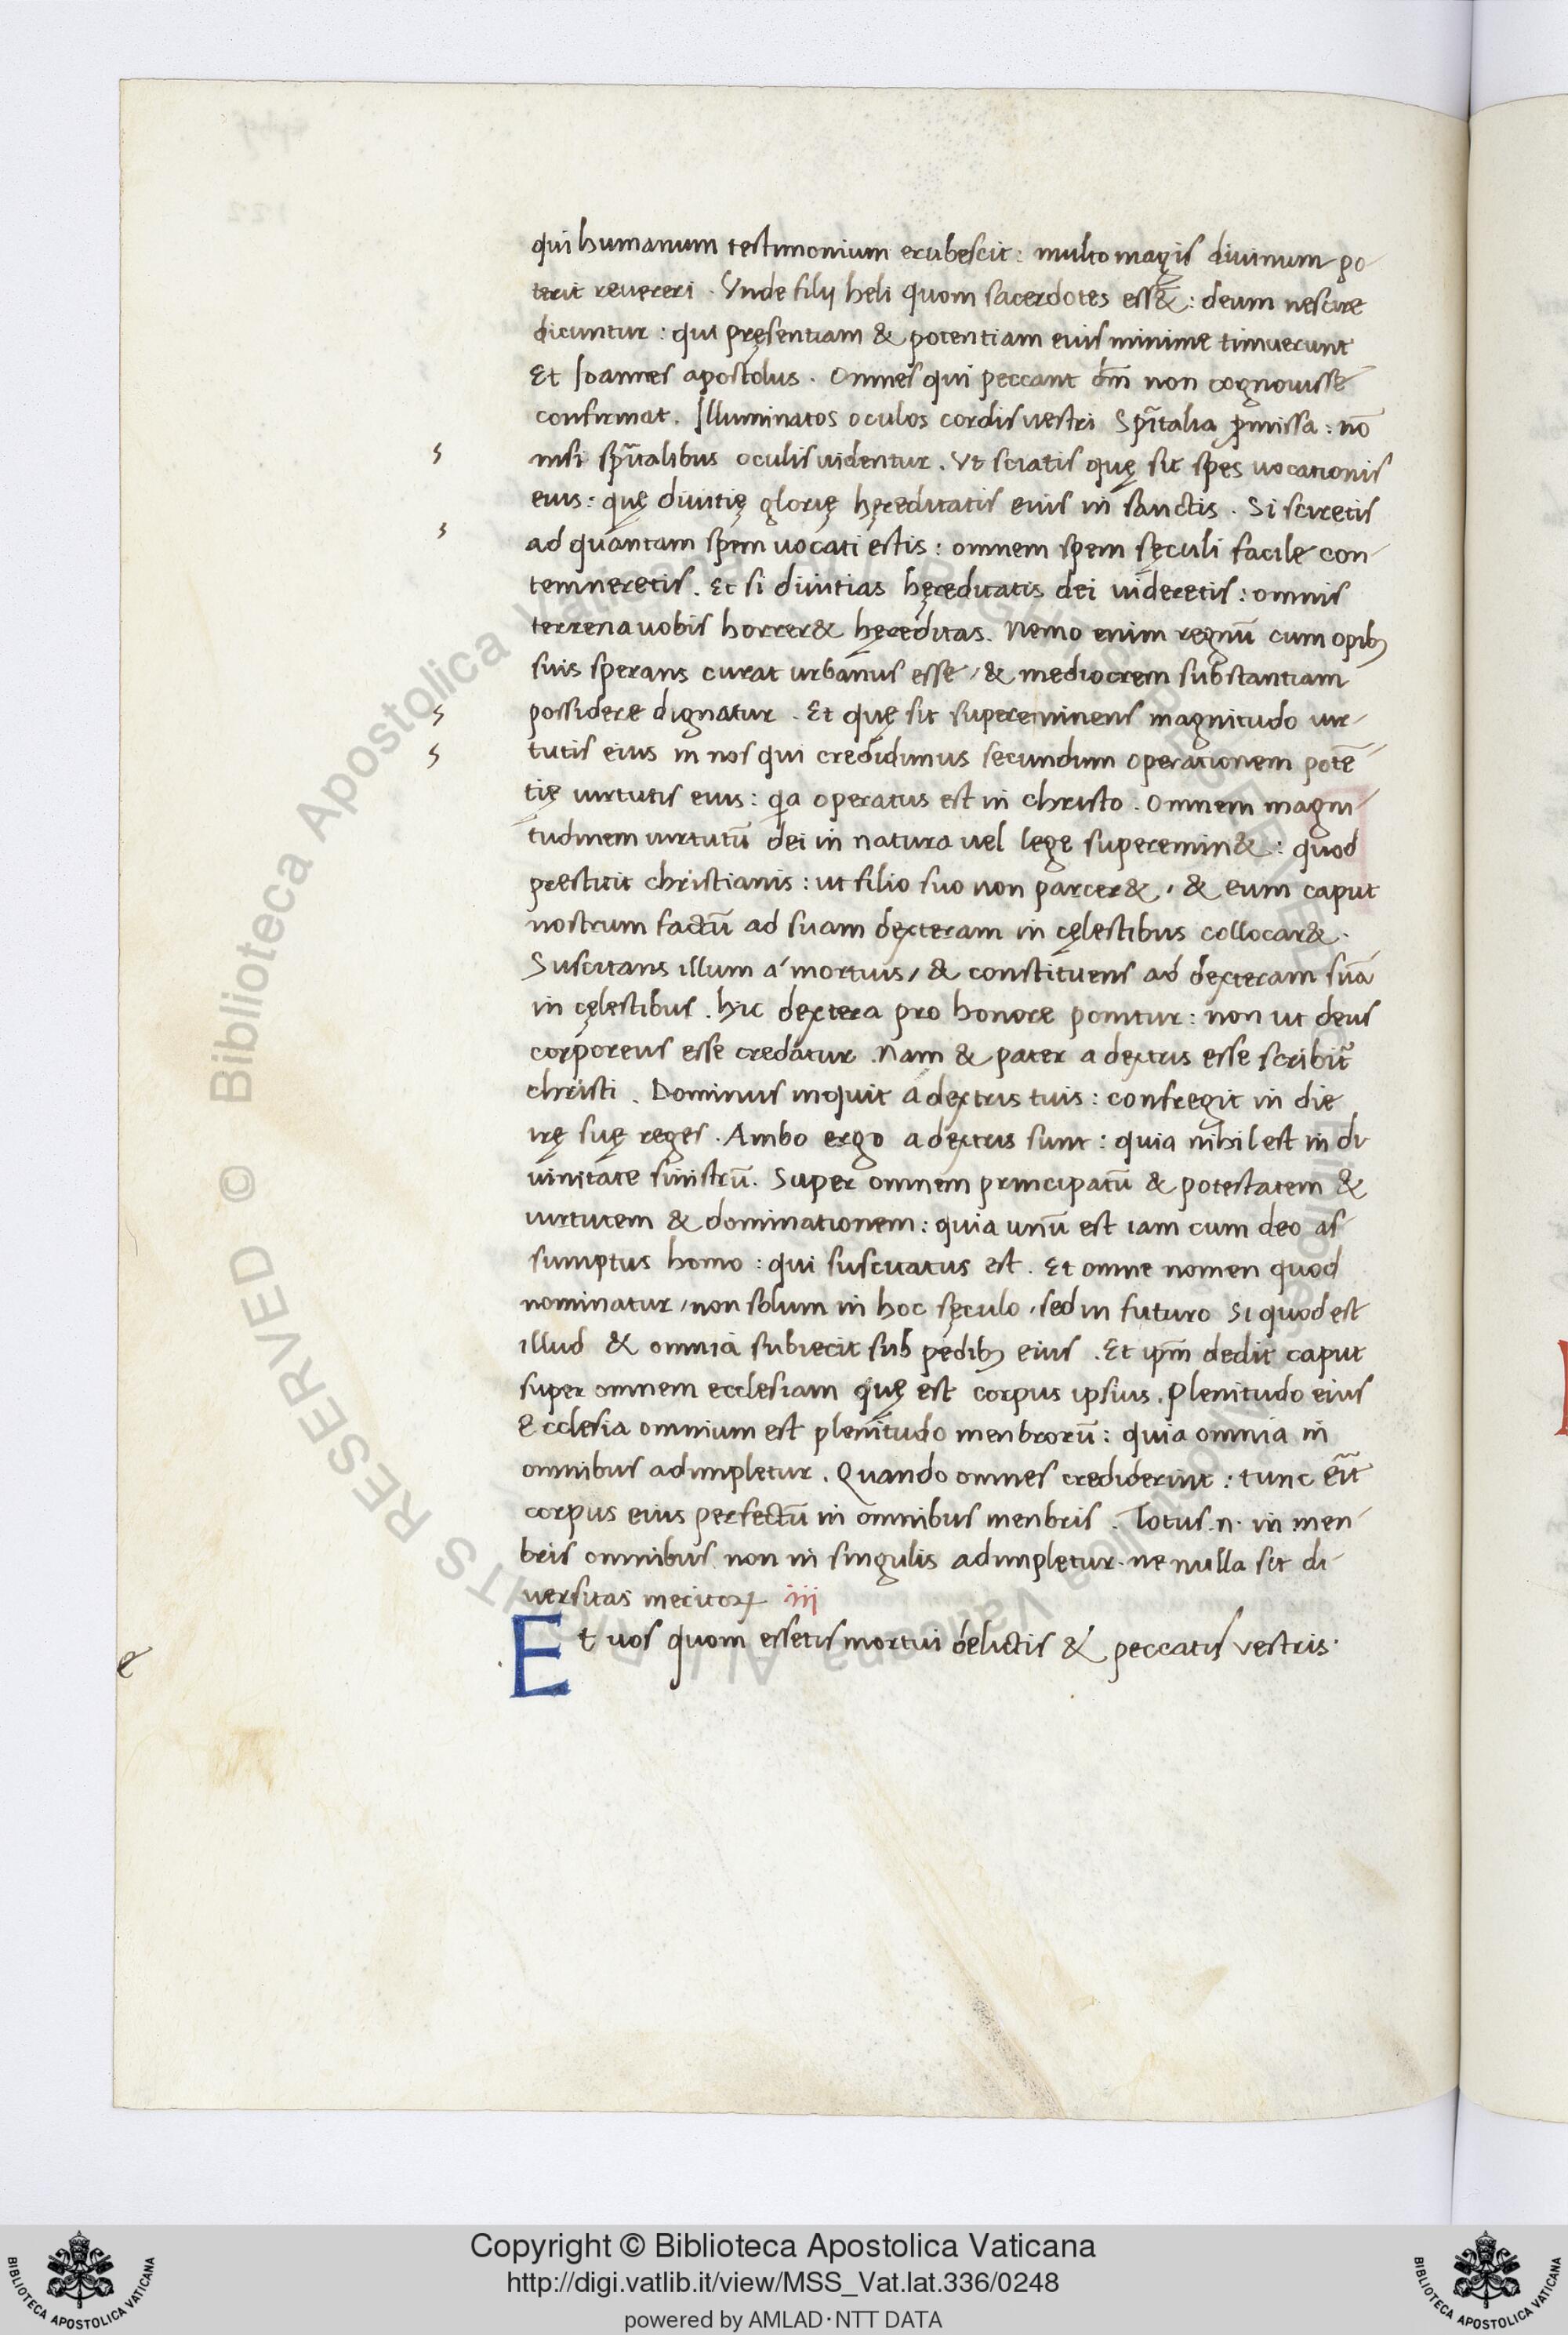 qui humanum testimonium erubescit: multo magis diuinum po-
terit reuereri. Vnde filij heli quom sacerdotes ess&: deum nescire
dicuntur: qui pręsentiam & potentiam eius minime timuerunt
Et Joannes apostolus. Omnes qui peccant dm̄ non cognouisse
confirmat. Illuminatos oculos cordis uestri Spr̃italia ꝓmissa: nō
nisi spr̃italibus oculis uidentur. Vt sciatis quę sit spes uocationis
eius: quę diuitię glorię hęreditatis eius in sanctis. Si sciretis
ad quantam spem uocati estis: omnem spem sęculi facile con-
temneretis. Et si diuitias hęreditatis dei uideretis: omnis
terrena uobis horrer& hęreditas. Nemo enim regnū cum opibꝫ
suis sperans curat urbanus esse / & mediocrem substantiam
possidere dignatur. Et quę sit supereminens magnitudo uir-
tutis eius in nos qui credidimus secundum operationem potē-
tię uirtutis eius: qa operatus est in christo. Omnem magni-
tudinem uirtutū dei in natura uel lege superemin&: quod
prestitit christianis: ut filio suo non parcer& / & eum caput
nostrum factū ad suam dexteram in cęlestibus collocar&.
Suscitans illum a mortuis / & constituens ad dexteram suā
in cęlestibus. hic dextera pro honore ponitur: non ut deus
corporeus esse credatur. Nam & pater a dextris esse scribit᷑
christi. Dominus inquit a dextris tuis: confregit in die
irę suę reges. Ambo ergo a dextris sunt: quia nihil est in di-
uinitate sinistrū. Super omnem principatū & potestatem &
uirtutem & dominationem: quia unū est iam cum deo as-
sumptus homo: qui suscitatus est. Et omne nomen quod
nominatur / non solum in hoc sęculo / sed in futuro Si quod est
illud & omnia subiecit sub pedibꝫ eius. Et ipm̄ dedit caput
super omnem ecclesiam quę est corpus ipsius. Plenitudo eius
Ecclesia omnium est plenitudo menbrorū: quia omnia in
omnibus adimpletur. Quando omnes crediderint: tunc erit
corpus eius perfectū in omnibus menbris. Totus .n. in men-
bris omnibus non in singulis adimpletur. ne nulla sit di-
uersitas meritoꝝ iii
Et uos quom essetis mortui delictis & peccatis vestris.
e
© Biblioteca Apostolica Vaticana ALL RIGHTS RESERVED
Copyright © Biblioteca Apostolica Vaticana
http://digi.vatlib.it/view/MSS_Vat.lat.336/0248
powered by AMLAD·NTT DATA
BIBLIOTECA APOSTOLICA VATICANA
BIBLIOTECA APOSTOLICA VATICANA